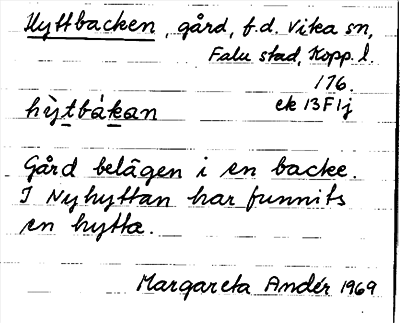 Hyttbacken, gård, f.d. Vika sn,
Falu stad, Kopp. l.
176.
hỳtbákan ek 13F1j
Gård belägen i en backe.
I Nyhyttan har funnits
en hytta.
Margareta Andér 1969